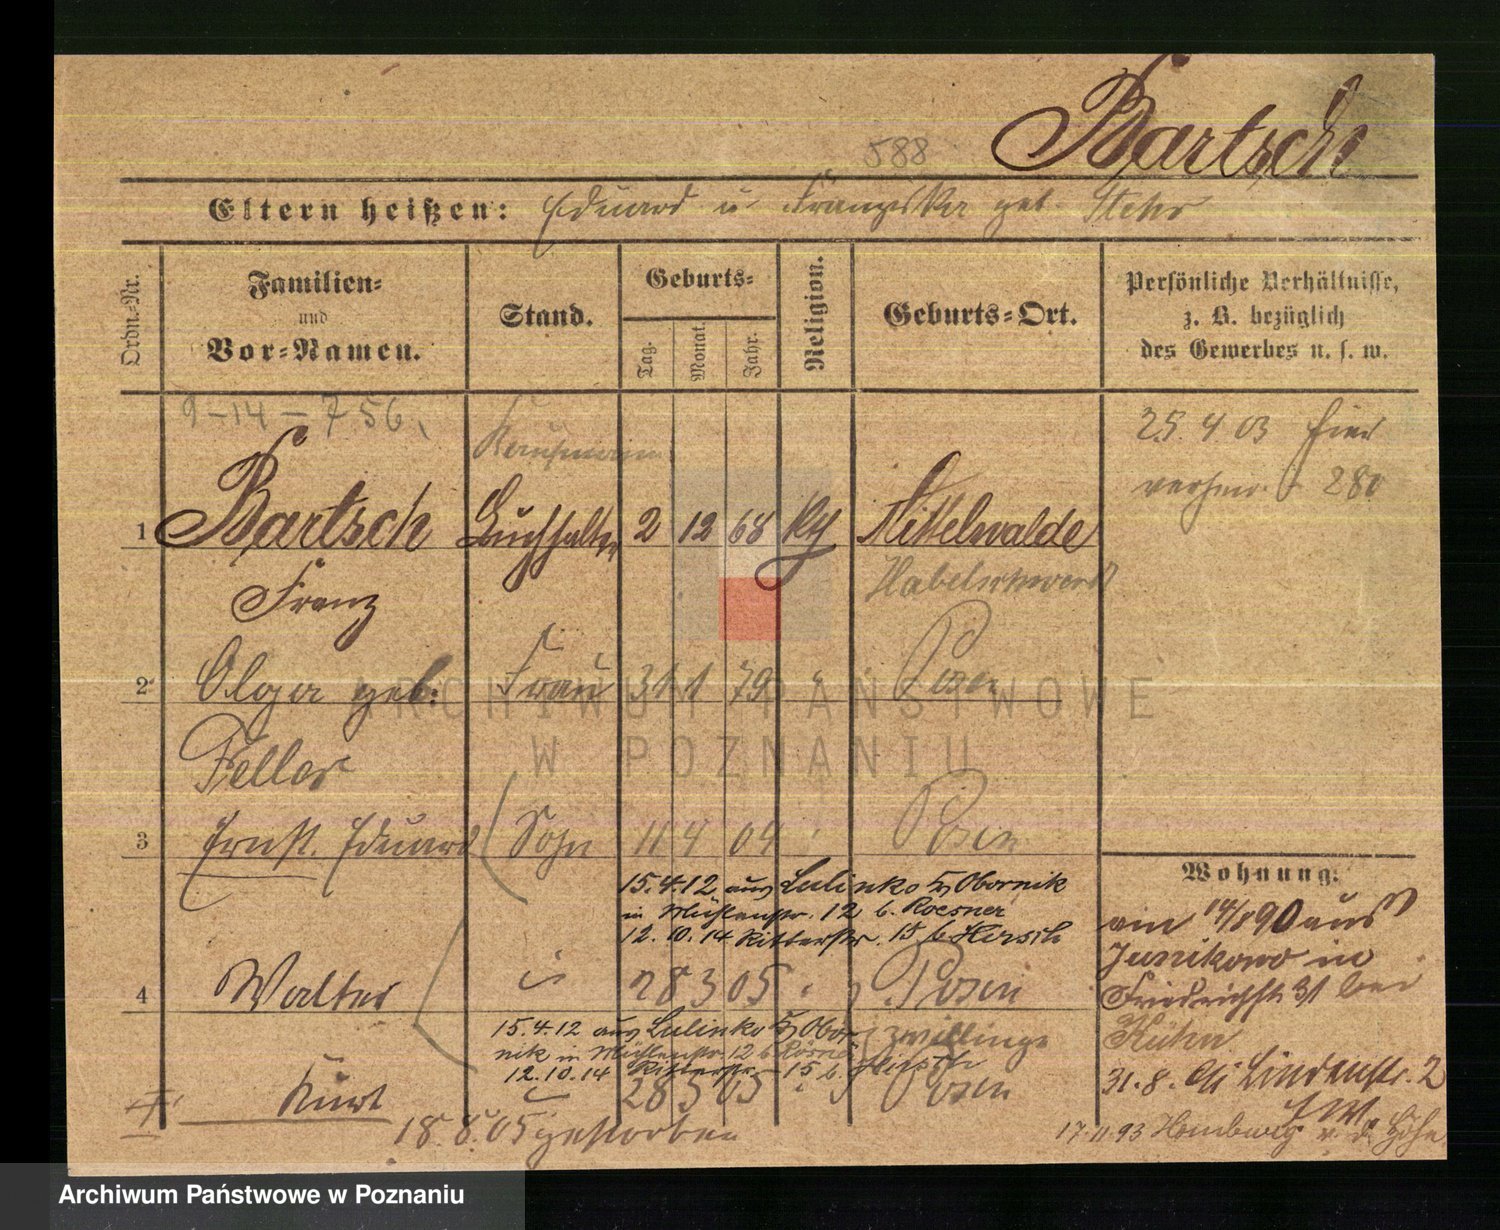 Bartsch
588
Eltern heißen: Eduard u. Franziska geb.
Ordn.-Nr.
Familien-
und
Vor-Namen.
Stand.
Geburts-
Tag.
Monat.
Jahr.
Religion.
Geburts-Ort.
Persönliche Verhältnisse,
z. B. bezüglich
des Gewerbes u. s. w.
9-14-756
25. 4 03 hier
280
Kaufmann
1 Bartsch Buchhalter 2 12 68 kth Mittelwalde
Franz Habelschwerdt
2 Olga geb. Frau 31 1 79 " Posen
Feller
3 Ernst. Eduard Sohn 11 4 04 " Posen
15.4.12 aus Lulinko Kr Obornik
in Mühlenstr. 12 b. Roesner
12.10.14 Ritterstr. 15 b. Hirsch
4 Walter " 28 3 05 " Posen
15.4.12 aus Lulinko Kr Obor-
nik in Mühlenstr. 12 b. Rösner
12.10.14 Ritterstr. 15 b. Hirsch
Zwillinge
Kurt " 28 3 05 " Posen
18. 8. 05 gestorben
Wohnung:
am 14/8 90 aus
Junikowo in
Friedrichstr 31 bei
Kuhn
31. 8. Lindenstr. 2
17.11.93 Homburg v. d. Höhe
ARCHIWUM PAŃSTWOWE
W POZNANIU
Archiwum Państwowe w Poznaniu